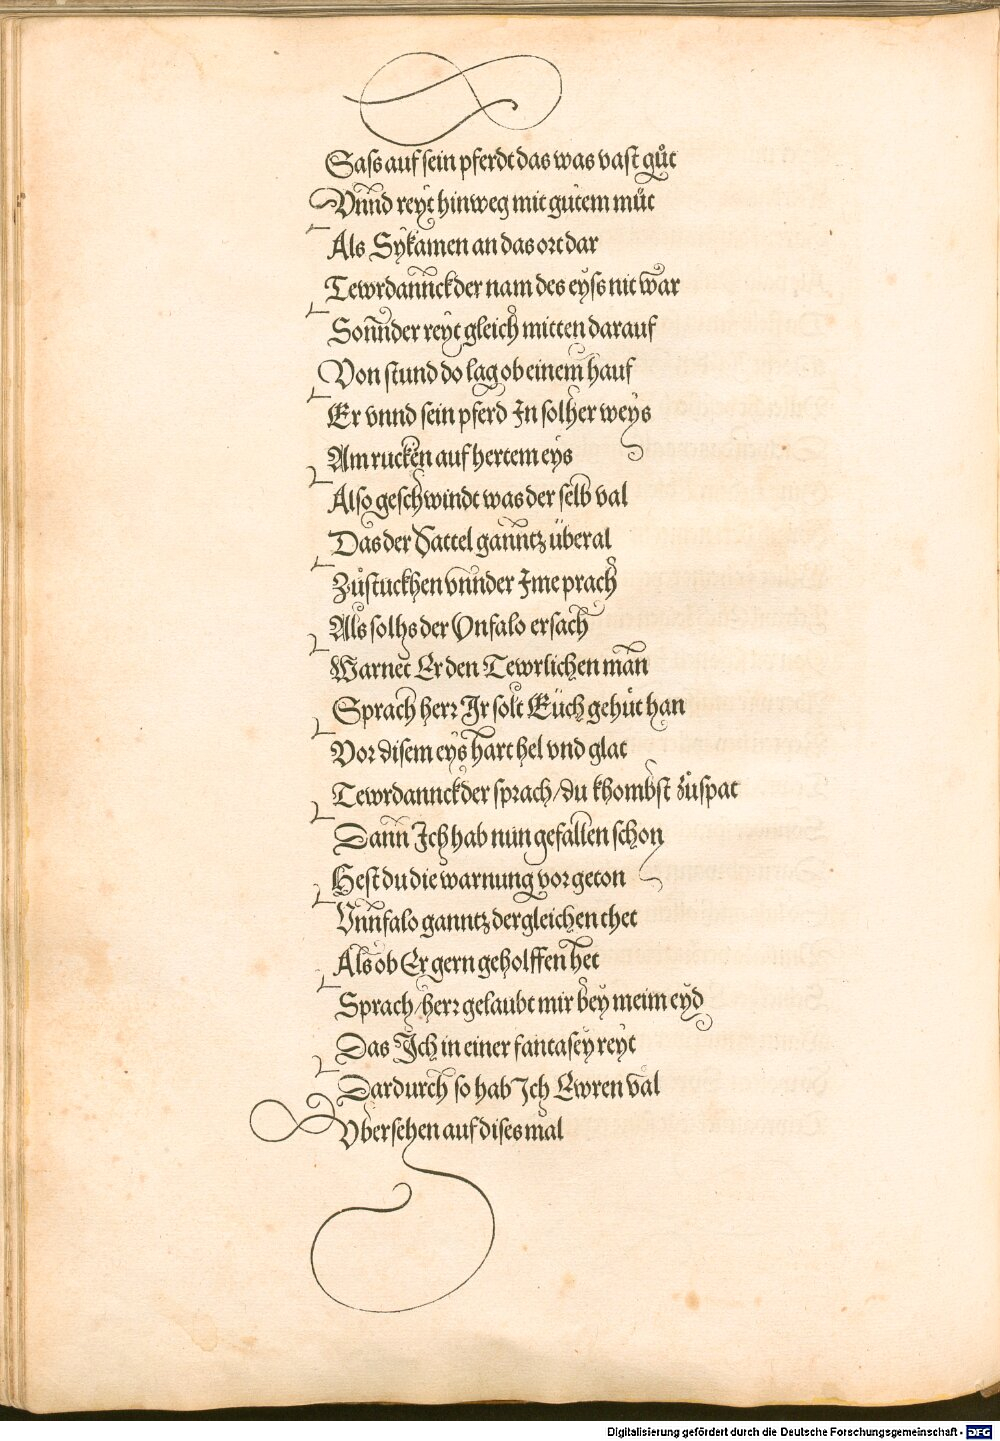 Sass auf sein pferdt das was vast gůt
Vnnd reyt hinweg mit gůtem můt
Als Sy kamen an das ort dar
Tewrdannckder nam des eyss nit war
Sonnder reyt gleich mitten darauf
Von stund do lag ob einem hauf
Er vnnd sein pferd In solher weys
Am rucken auf hertem eys
Also geschwindt was der selb val
Das der Sattel ganntz überal
Zůstuckhen vnnder Ime prach
Als solhs der Vnfalo ersach
Warnet Er den Tewrlichen man
Sprach herr Ir solt Eüch gehůt han
Vor disem eys hart hel vnd glat
Tewrdannckder sprach/du khombst zůspat
Dann Ich hab nun gefallen schon
Hest du die warnung vor geton
Vnnfalo ganntz dergleichen thet
Als ob Er gern geholffen het
Sprach/herr gelaubt mir bey meim eyd
Das Ich in einer fantasey reyt
Dardurch so hab Ich Ewren val
Vbersehen auf dises mal
Digitalisierung gefördert durch die Deutsche Forschungsgemeinschaft - DFG